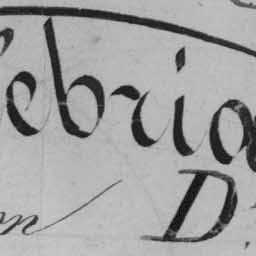 ebria
on D